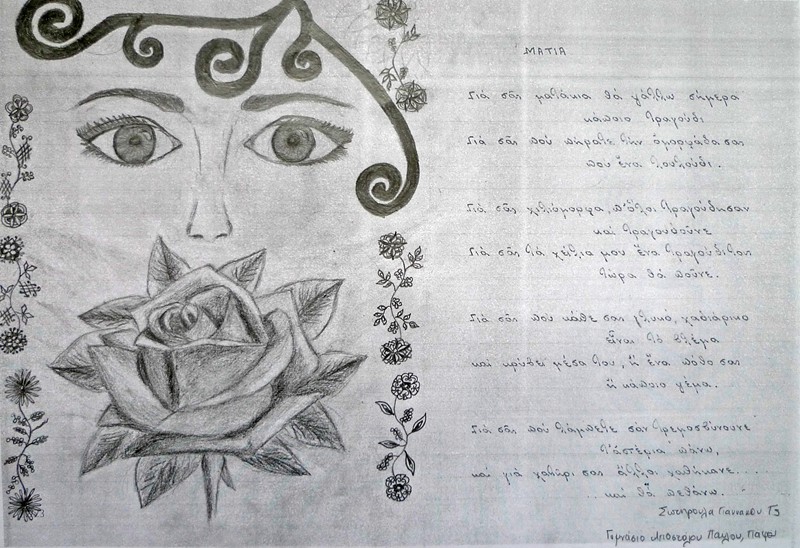 ΜΑΤΙΑ
Γιά σᾶς ματάκια θά γάλλω σήμερα
κάποιο τραγούδι
Γιά σᾶς πού πήρατε τήν ὀμορφάδα σας
που ἕνα λουλούδι.
Γιά σᾶς χιλιόμορφα, π' ὅλοι τραγούδησαν
καί τραγουδοῦνε
Γιά σᾶς τά χείλια μου ἕνα
τώρα θά ποῦνε.
Γιά σᾶς πού κάθε σας γλυκό, χαδιάρικο
εἶναι τό βλέμα
καί κρύβει μέσα του, ἤ ἕνα πόθο σας
ἤ κάποιο γέμα.
Γιά σᾶς πού λάμπετε σάν τρεμοσβύνουνε
τ' ἀστέρια πάνω,
καί γιά χατήρι σας ἄλλοι χαθήκανε.....
..καί θά πεθάνω.
Σωτηρούλα Γιαννάκου Γ3
Γυμνάσιο Αποστόλου Παύλου, Πάφου